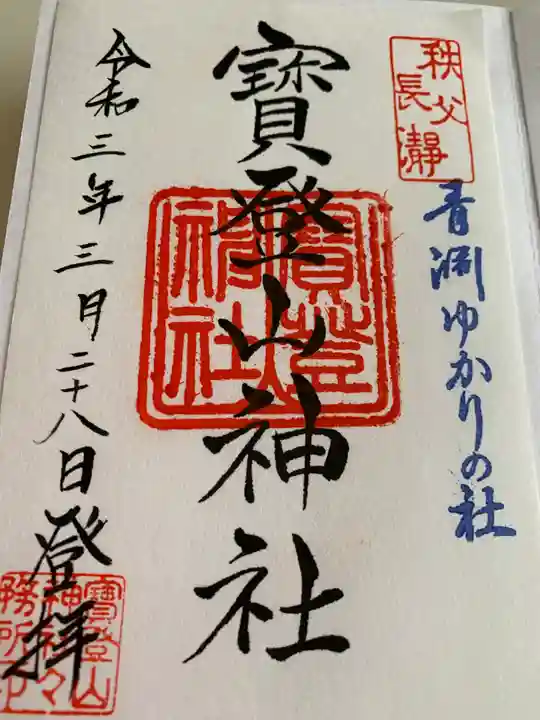 秩父
長瀞
青淵ゆかりの社
寳登山神社
寳登山
神社
令和三年三月二十八日登拝
寳登山
神社々
務所印